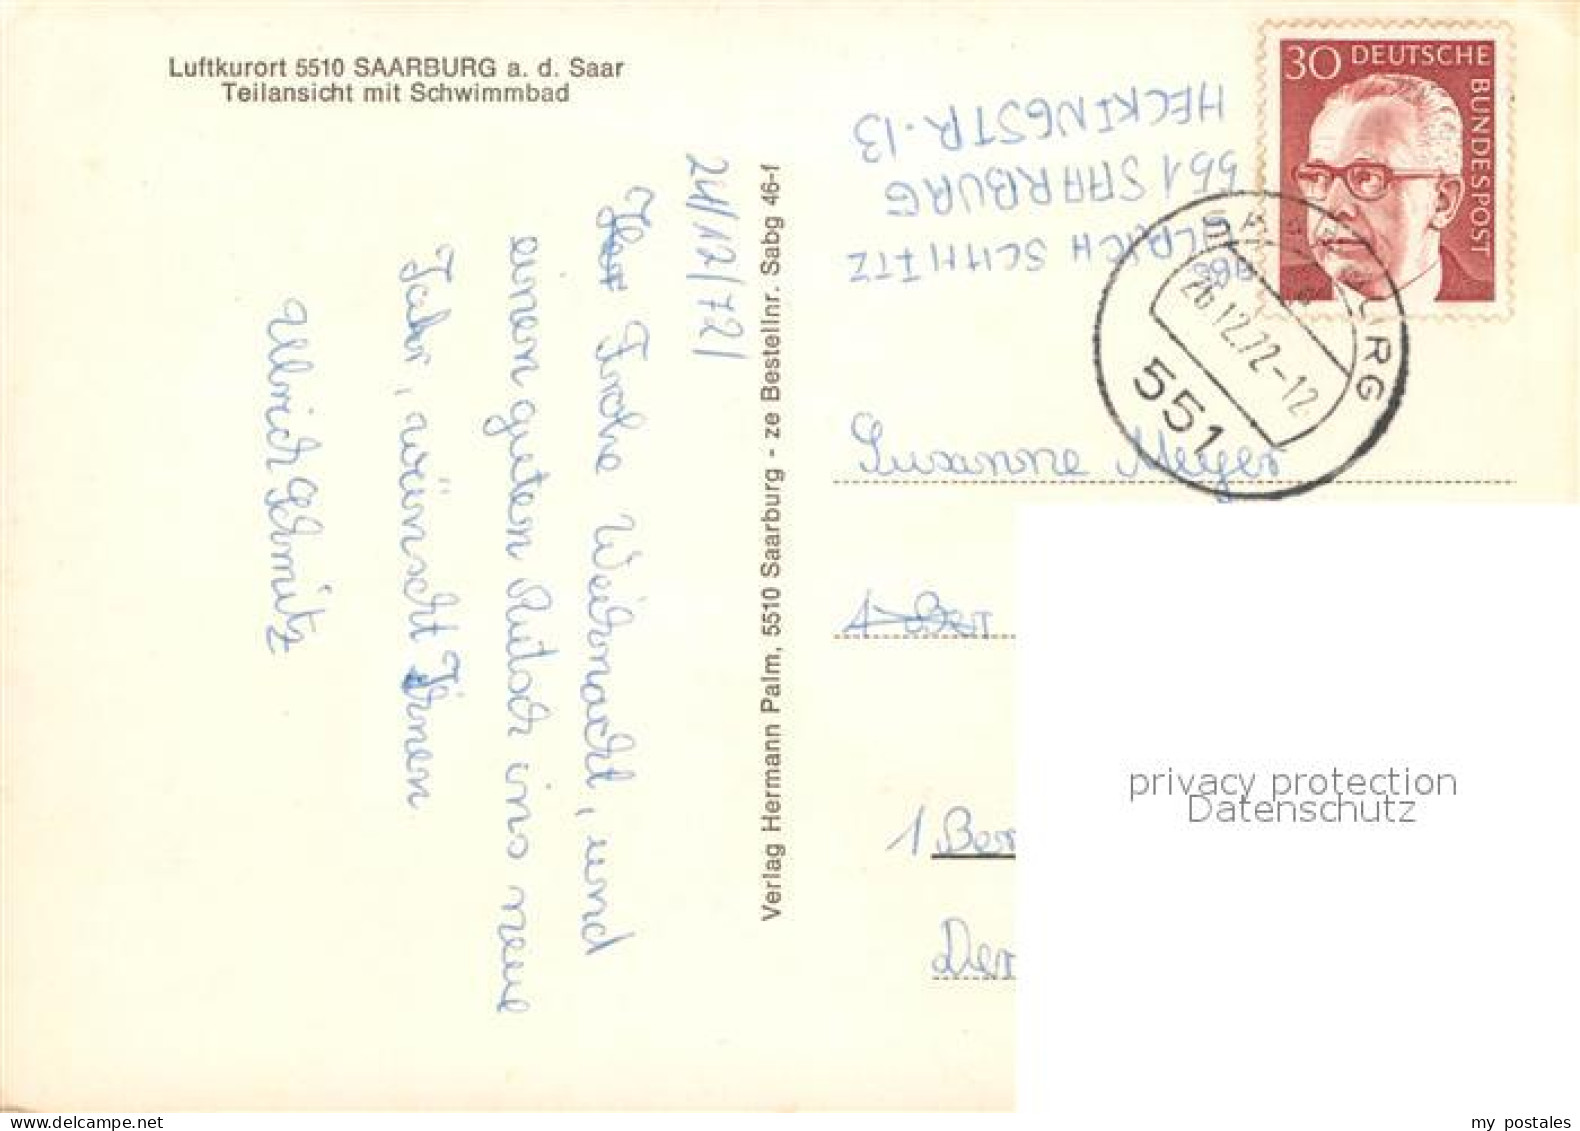 Luftkurort 5510 SAARBURG a. d. Saar
Teilansicht mit Schwimmbad
24/12/72/
Frohe Weihnacht, und
einen guten Rutsch ins neue
Jahr, wünscht Ihnen
Ullrich Schmitz
Verlag Hermann Palm, 5510 Saarburg - ze Bestellnr. Sabg 46-1
ULRICH SCHMITZ
551 SAARBURG
HECKINGSTR. 13
30 DEUTSCHE
BUNDESPOST
SAARBURG
26.12.72-12
551
Susanne Meyer
1 Ber
Der
privacy protection
Datenschutz
my postales